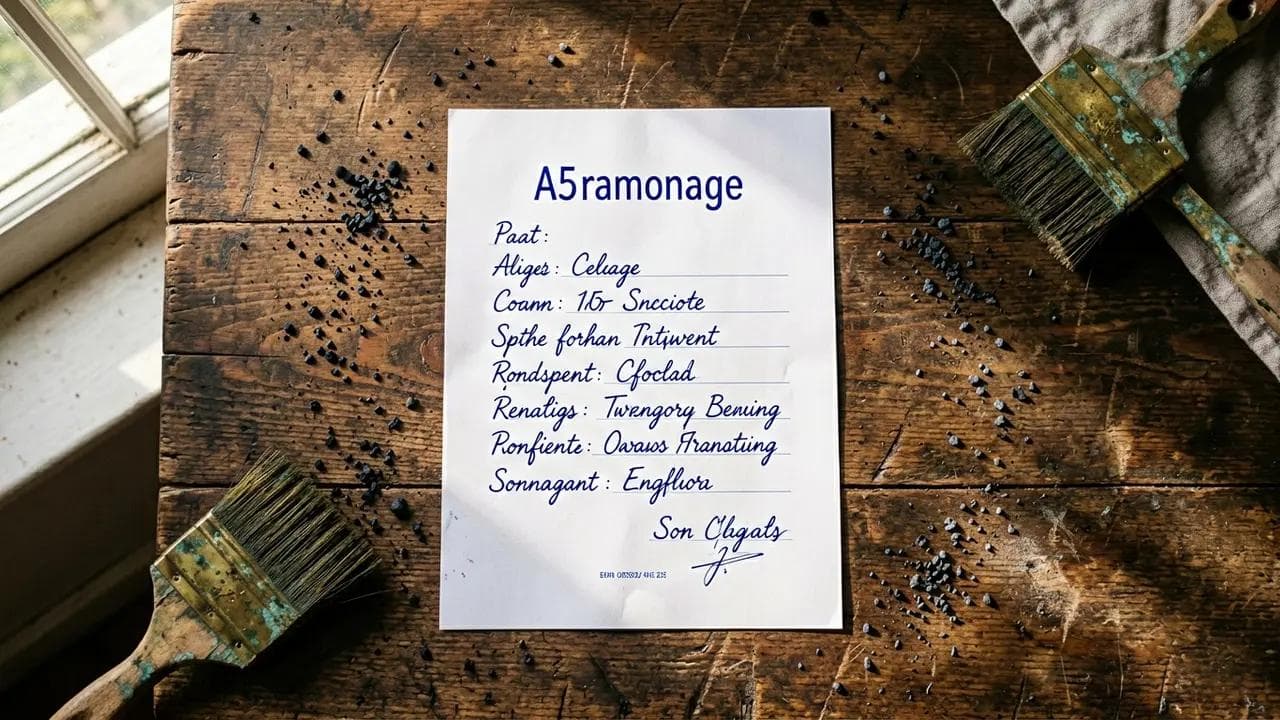 A5ramonage
Paat:
Aliges: Celuage
Coann: 15r Sncciote
Spthe forhan Tntiwent
Rondspent: Cfoclad
Renatigs: Twengory Beming
Ronfiente: Owaws Franatiing
Sonnagant: Engfluora
Son Clagats